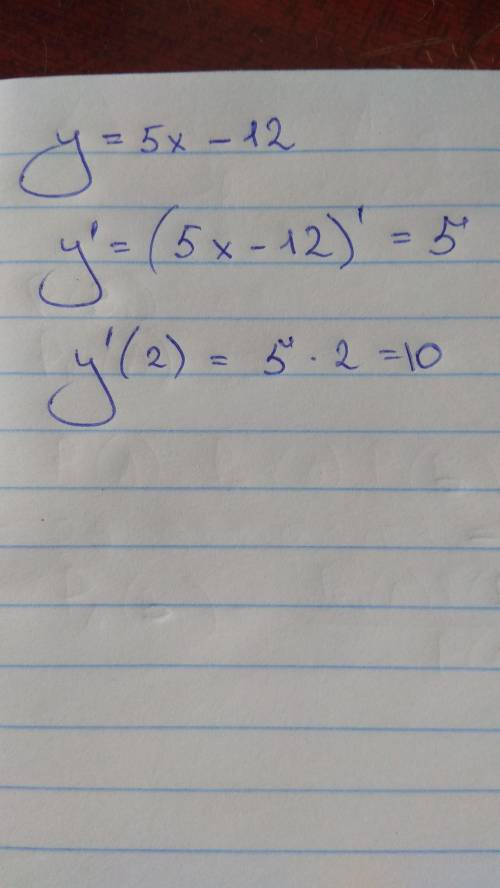 y = 5x - 12
y' = (5x - 12)' = 5
y'(2) = 5 · 2 = 10